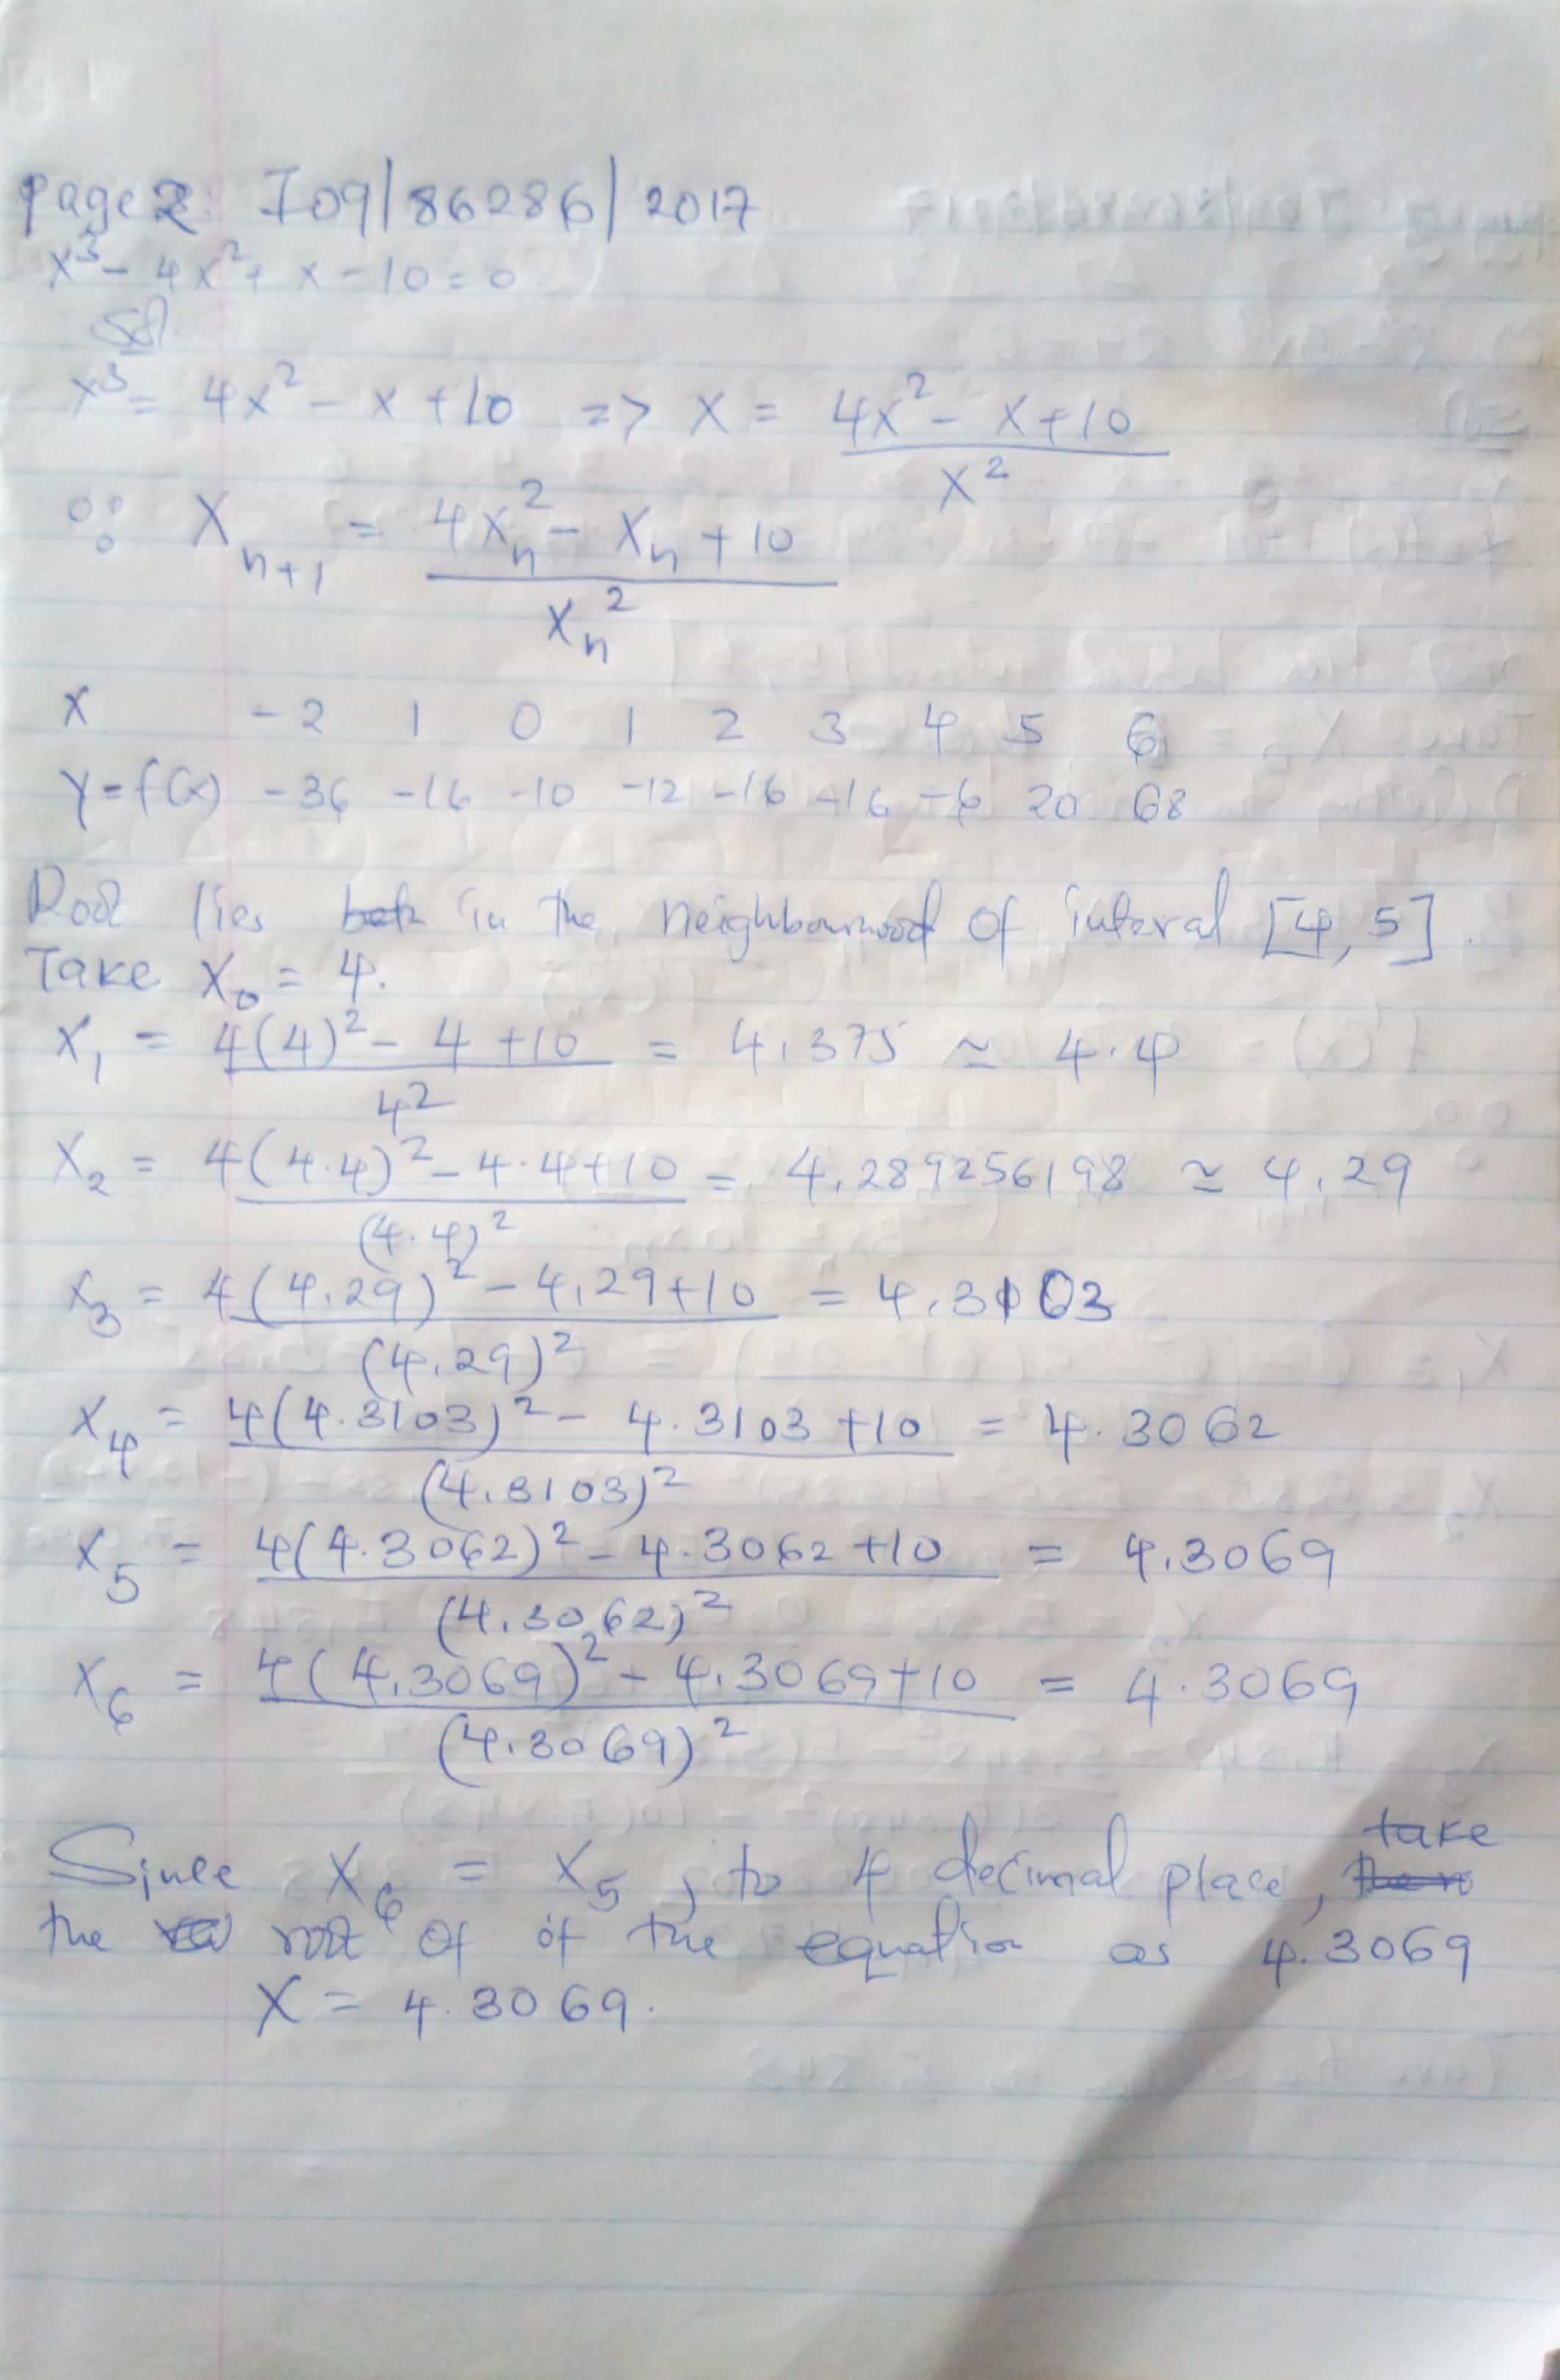 Page 2: I09/86286/2017
x³ - 4x² + x - 10 = 0
Sol
x³ = 4x² - x + 10 => x = (4x² - x + 10)/x²
∴ Xₙ₊₁ = (4xₙ² - xₙ + 10)/xₙ²
x -2 1 0 1 2 3 4 5 6
y=f(x) -36 -16 -10 -12 -16 -16 -6 20 68
Root lies in the neighbourhood of interval [4, 5].
Take x₀ = 4.
x₁ = (4(4)² - 4 + 10)/4² = 4.375 ≃ 4.4
x₂ = (4(4.4)² - 4.4 + 10)/(4.4)² = 4.289256198 ≃ 4.29
x₃ = (4(4.29)² - 4.29 + 10)/(4.29)² = 4.3103
x₄ = (4(4.3103)² - 4.3103 + 10)/(4.3103)² = 4.3062
x₅ = (4(4.3062)² - 4.3062 + 10)/(4.3062)² = 4.3069
x₆ = (4(4.3069)² - 4.3069 + 10)/(4.3069)² = 4.3069
Since x₆ = x₅, to 4 decimal place, take
the root of of the equation as 4.3069
X = 4.3069.